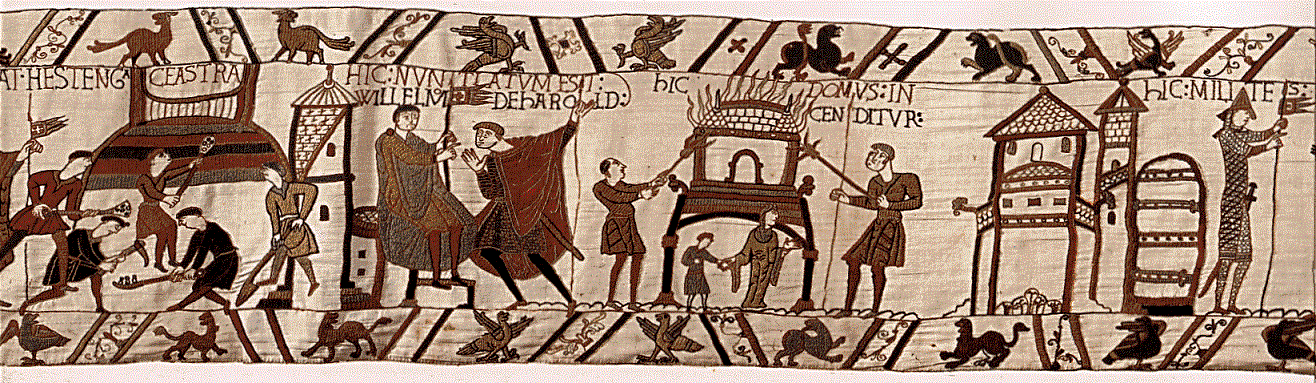 AT:HESTENGA CEASTRA
HIC:NVNTIATVM EST:
WILLELM DE HAROLD:
hIC DOMVS:IN
CENDITVR:
hIC:MILITES: